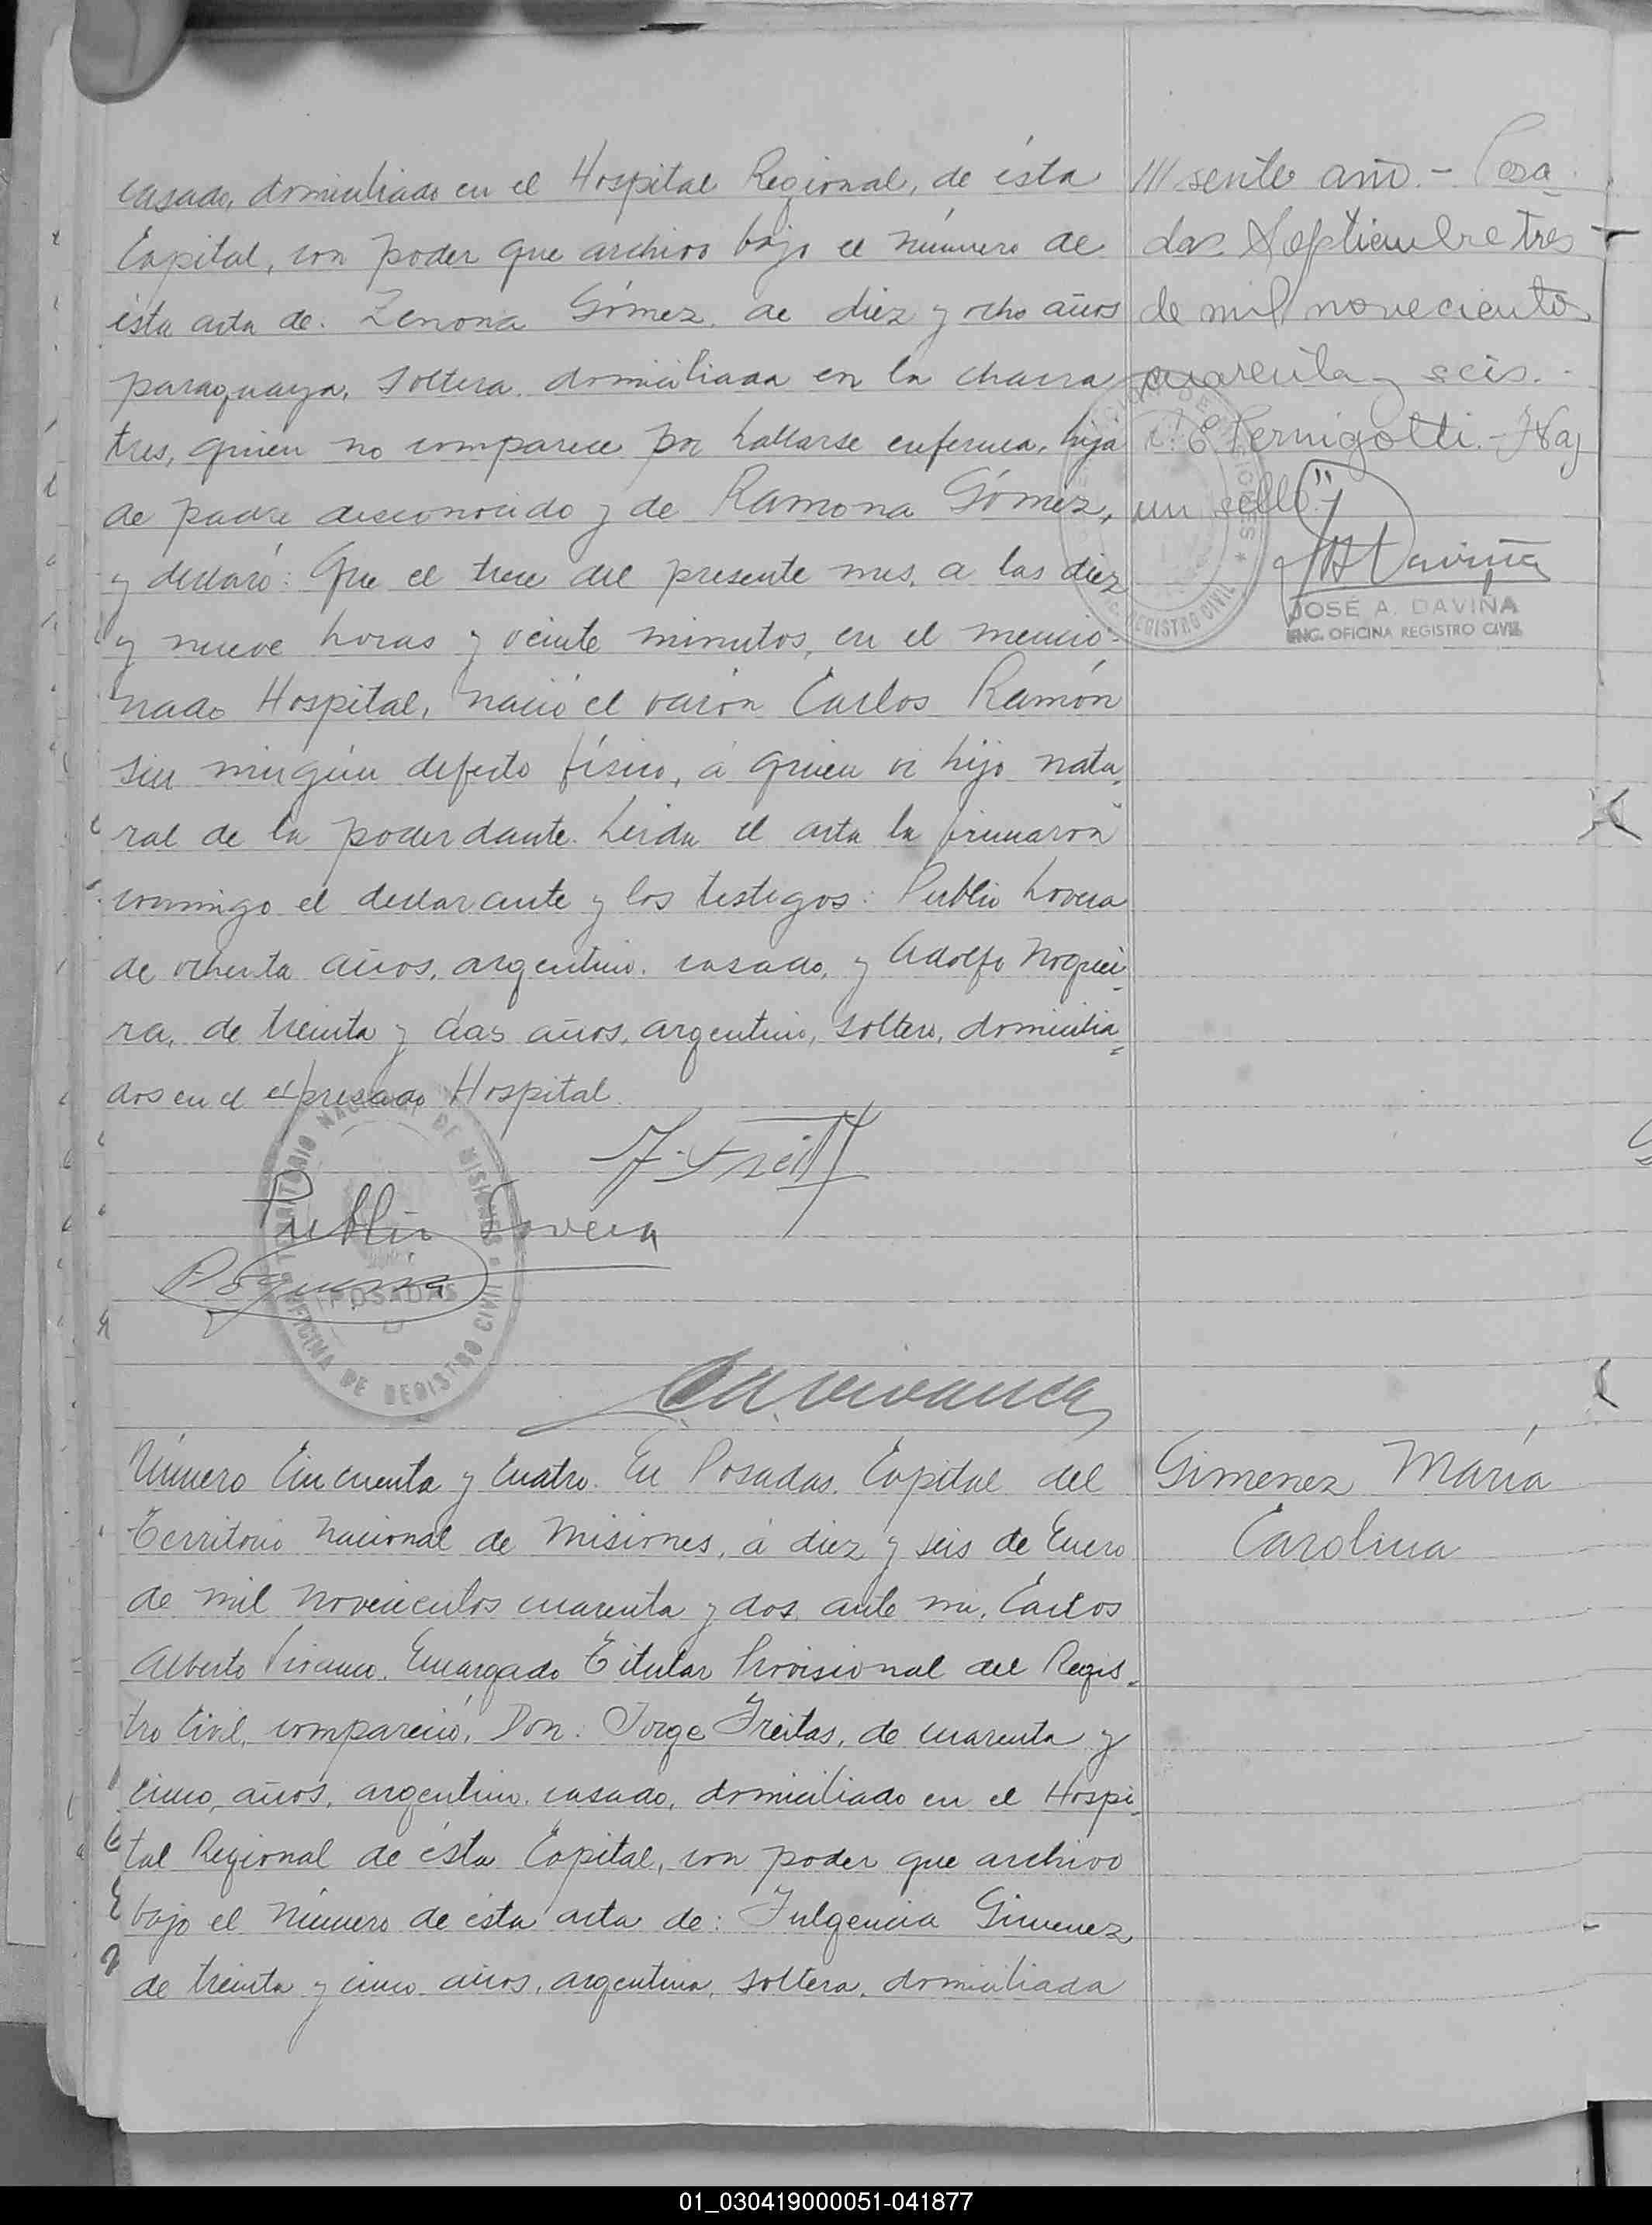 casado, domiciliado en el Hospital Regional, de ésta
Capital, con poder que archivo bajo el número de
ésta acta de. Zenona Gómez, de diez y ocho años
paraguaya, soltera, domiciliada en la chacra
tres, quien no comparece por hallarse enferma, hija
de padre desconocido y de Ramona Gómez,
y declaró: Que el trece del presente mes, a las diez
y nueve horas y veinte minutos, en el mencio-
nado Hospital, nació el varón Carlos Ramón
sin ningún defecto físico, á quien vi hijo natu-
ral de la poderdante. Leida el acta la firmaron
conmigo el declarante y los testigos: Publio Lovera
de ochenta años, argentino, casado, y Adolfo Noguei-
ra, de treinta y dos años, argentino, soltero, domicilia-
dos en el expresado Hospital.
J. Freit
Publio Lovera
TERRITORIO NACIONAL DE MISIONES
POSADAS
OFICINA DE REGISTRO CIVIL
Número Cincuenta y Cuatro. En Posadas, Capital del
Territorio Nacional de Misiones, á diez y seis de Enero
de mil novecientos cuarenta y dos, ante mi, Carlos
Alberto Vivanco, Encargado Titular Provisional del Regis-
tro Civil, compareció, Don: Jorge Freitas, de cuarenta y
cinco, años, argentino, casado, domiciliado en el Hospi-
tal Regional de ésta Capital, con poder que archivo
bajo el número de ésta acta de: Fulgencia Gimenez,
de treinta y cinco años, argentina, soltera, domiciliada
/// sente año.- Posa-
das Septiembre tres
de mil novecientos
cuarenta y seis.-
E Pernigotti.- Hay
un sello"
REGISTRO CIVIL
JOSÉ A. DAVIÑA
ENC. OFICINA REGISTRO CIVIL
Gimenez María
Carolina
01_030419000051-041877